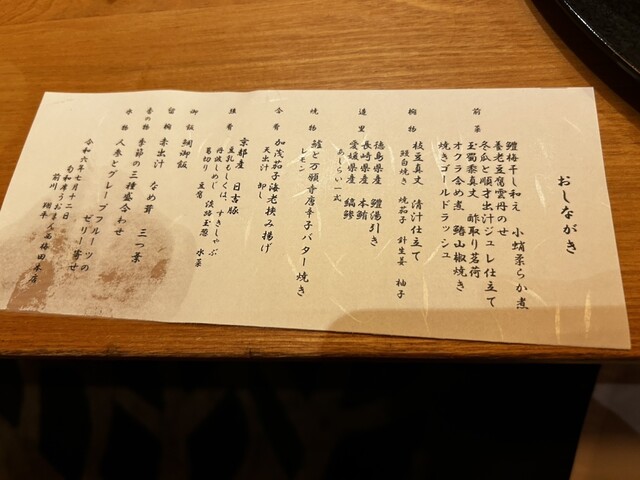 おしながき
前菜
鱧梅干し和え 小蛸柔らか煮
養老豆腐雲丹のせ
冬瓜と順才出汁ジュレ仕立て
玉蜀黍真丈 酢取り茗荷
オクラ含め煮 鰆山椒焼き
焼きゴールドラッシュ
椀物
枝豆真丈 清汁仕立て
鰻白焼き 焼茄子 針生姜 柚子
造里
徳島県産 鱧湯引き
長崎県産 本鮪
愛媛県産 縞鯵
あしらい一式
焼物
鱸と万願寺唐辛子バター焼き
レモン
合肴
加茂茄子海老挟み揚げ
天出汁 卸し
強肴
京都産 日古豚
豆乳もしくは すきしゃぶ
丹波しめじ 淡路玉葱 水菜
葛切り 豆腐
御飯
鯛御飯
留椀
赤出汁 なめ茸 三つ葉
香の物
季節の三種盛合わせ
水物
人参とグレープフルーツの
ゼリー寄せ
令和六年七月十二日
旬和席うおまん 梅田本店
前川 翔平